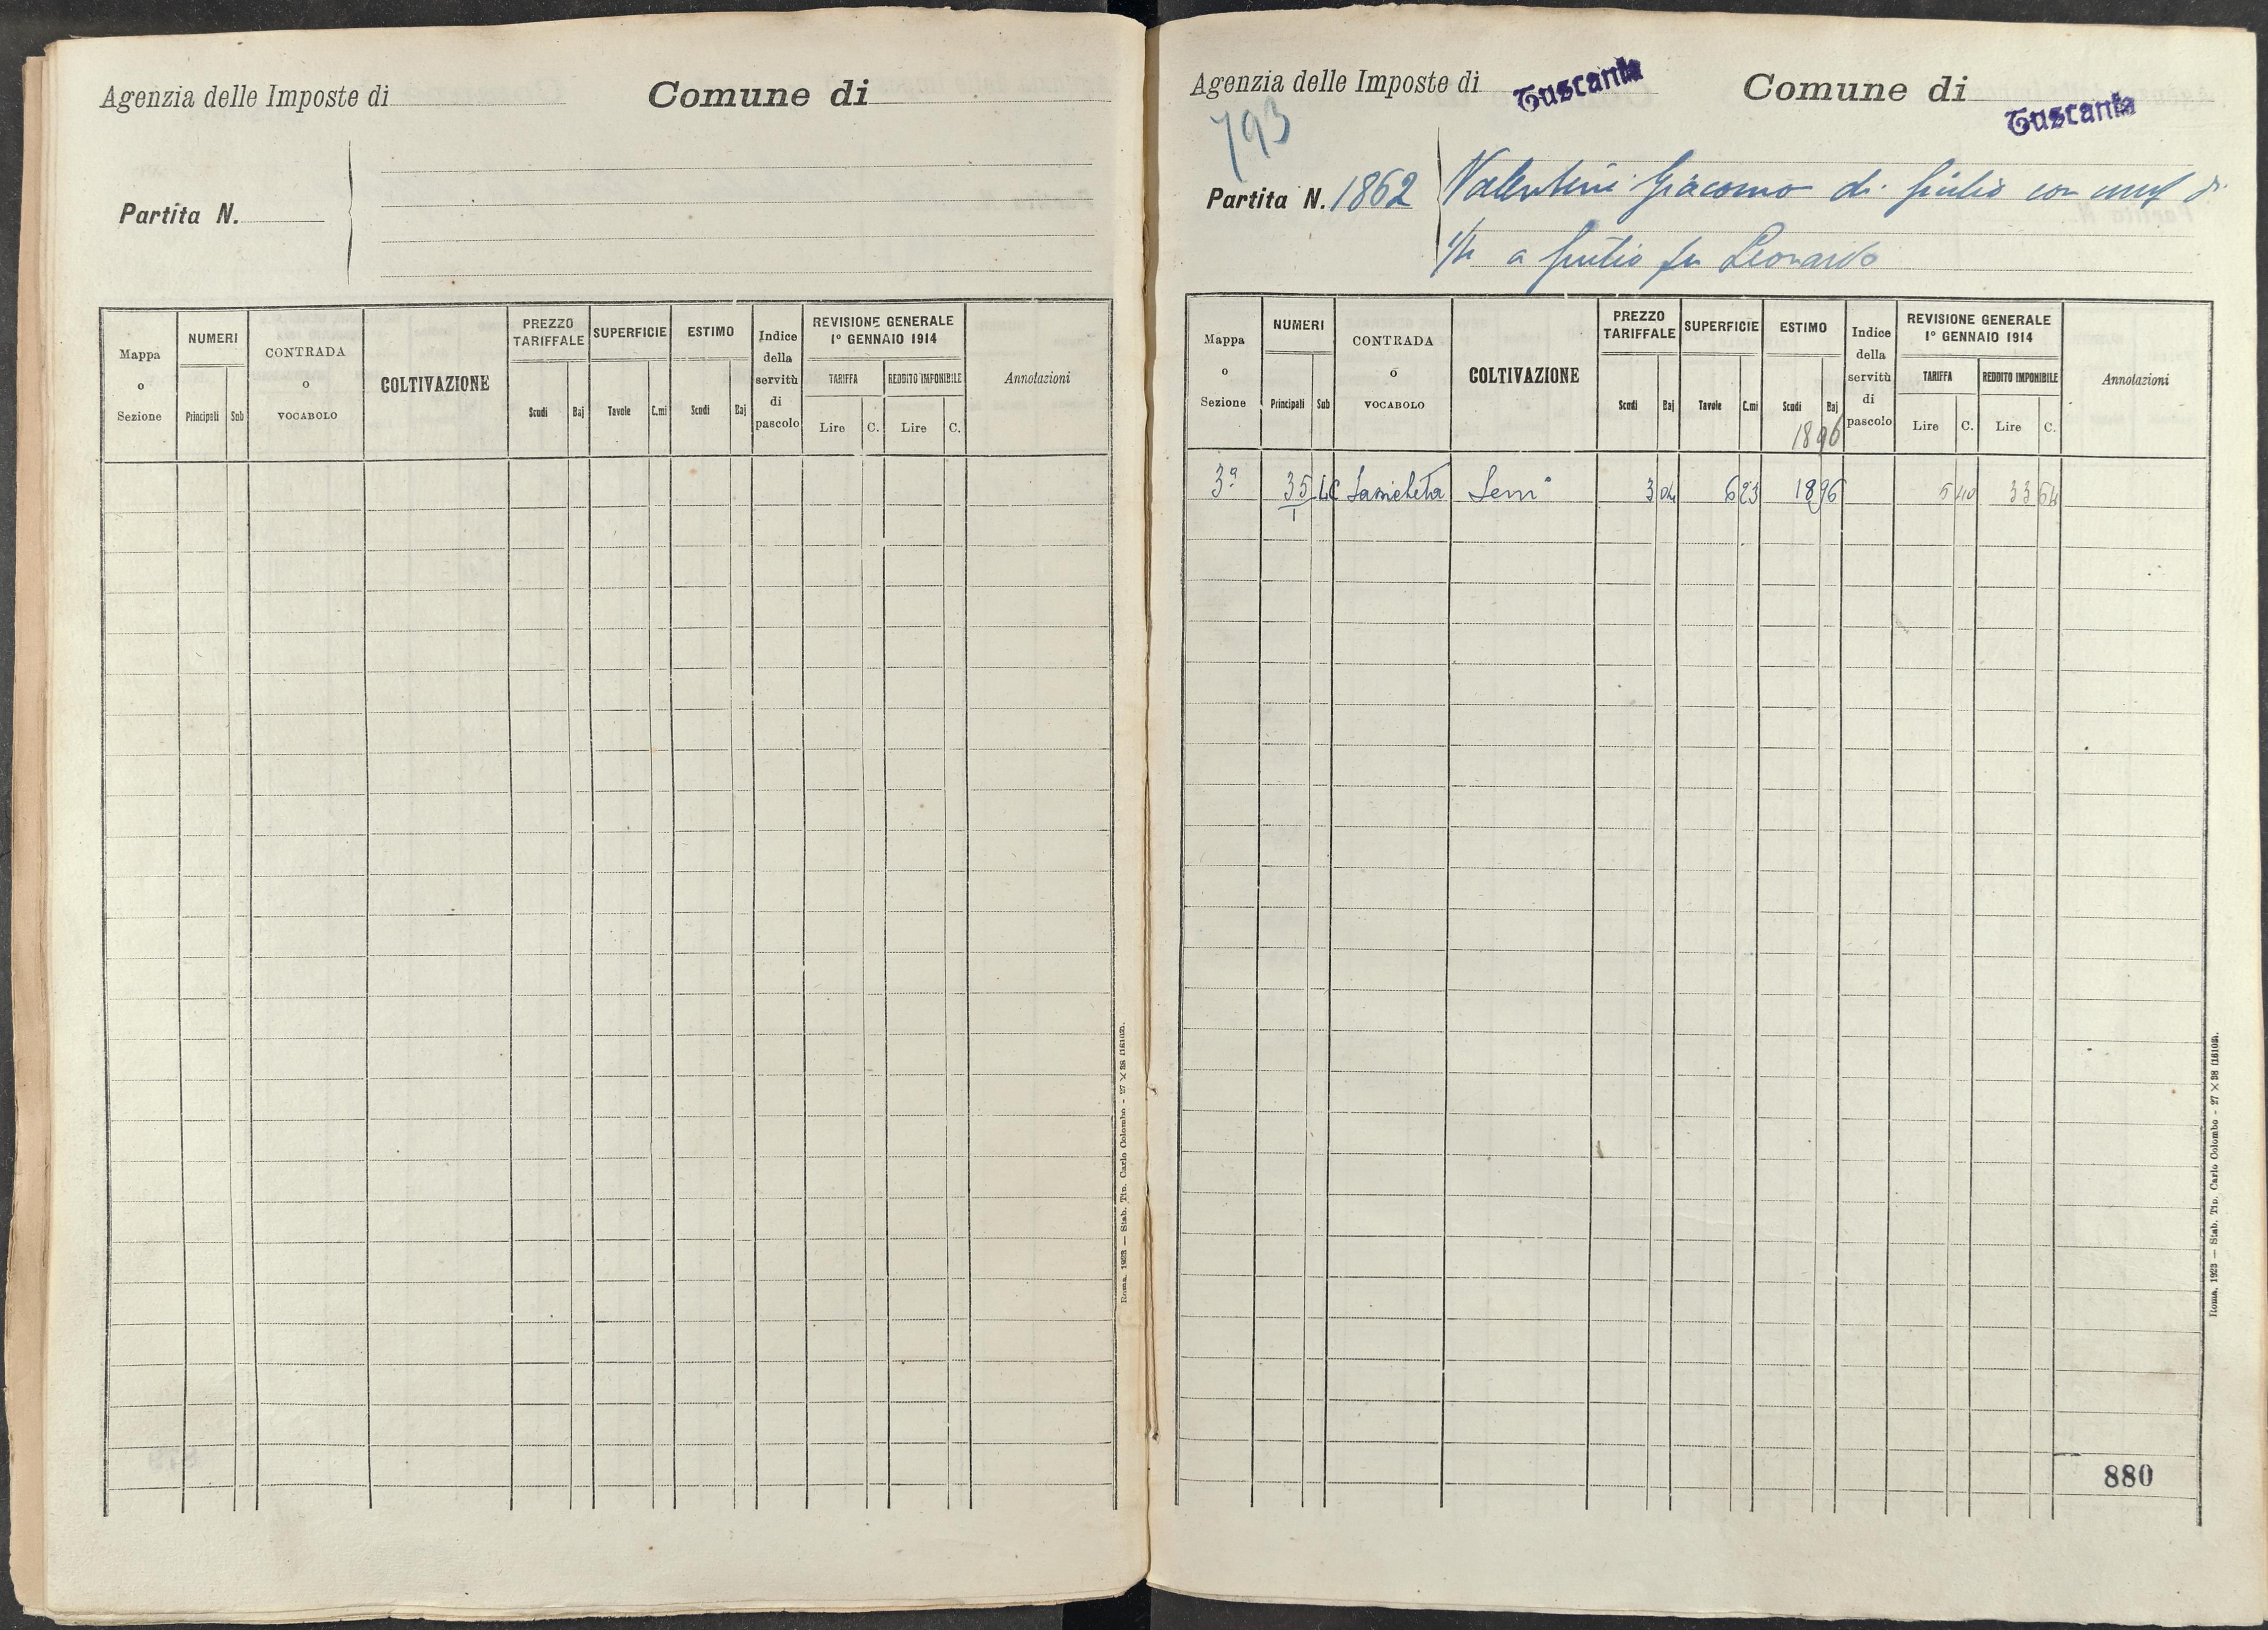 Agenzia delle Imposte di
Comune di
Partita N.
Mappa o Sezione
NUMERI
Principali
Sub
CONTRADA O VOCABOLO
COLTIVAZIONE
PREZZO TARIFFALE
Scudi
Baj
SUPERFICIE
Tavole
C.mi
ESTIMO
Scudi
Baj
Indice della servitù di pascolo
REVISIONE GENERALE
1° GENNAIO 1914
TARIFFA
Lire
C.
REDDITO IMPONIBILE
Lire
C.
Annotazioni
Roma, 1923 — Stab. Tip. Carlo Colombo - 27 × 38 (16102).
Agenzia delle Imposte di Tuscania
Comune di Tuscania
793
Partita N. 1862
Valentini Giacomo di Giulio con usuf di
1/4 a Giulio fu Leonardo
Mappa o Sezione
NUMERI
Principali
Sub
CONTRADA O VOCABOLO
COLTIVAZIONE
PREZZO TARIFFALE
Scudi
Baj
SUPERFICIE
Tavole
C.mi
ESTIMO
Scudi
Baj
1896
Indice della servitù di pascolo
REVISIONE GENERALE
1° GENNAIO 1914
TARIFFA
Lire
C.
REDDITO IMPONIBILE
Lire
C.
Annotazioni
3ª 35/1 Sem° 3 04 6 23 18 96 5 40 33 64
880
Roma, 1923 — Stab. Tip. Carlo Colombo - 27 × 38 (16102).